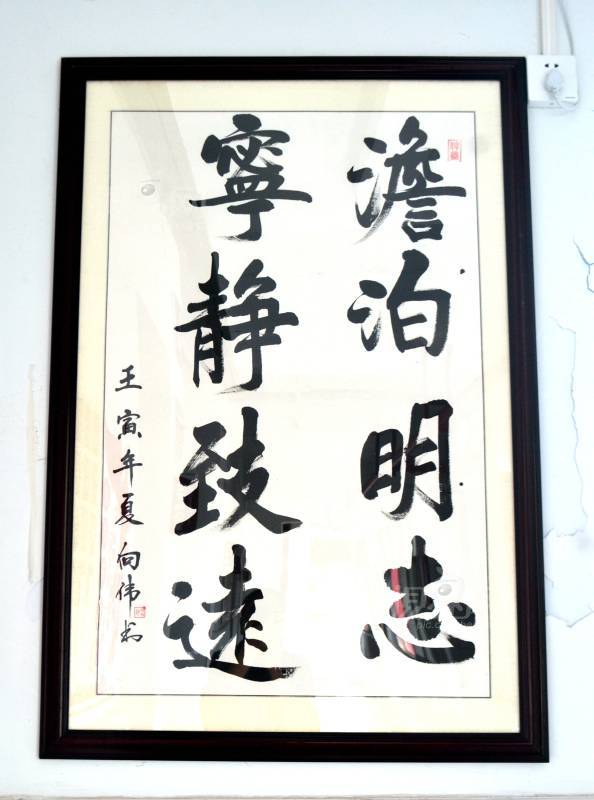 澹泊明志
寧静致遠
壬寅年夏向伟书